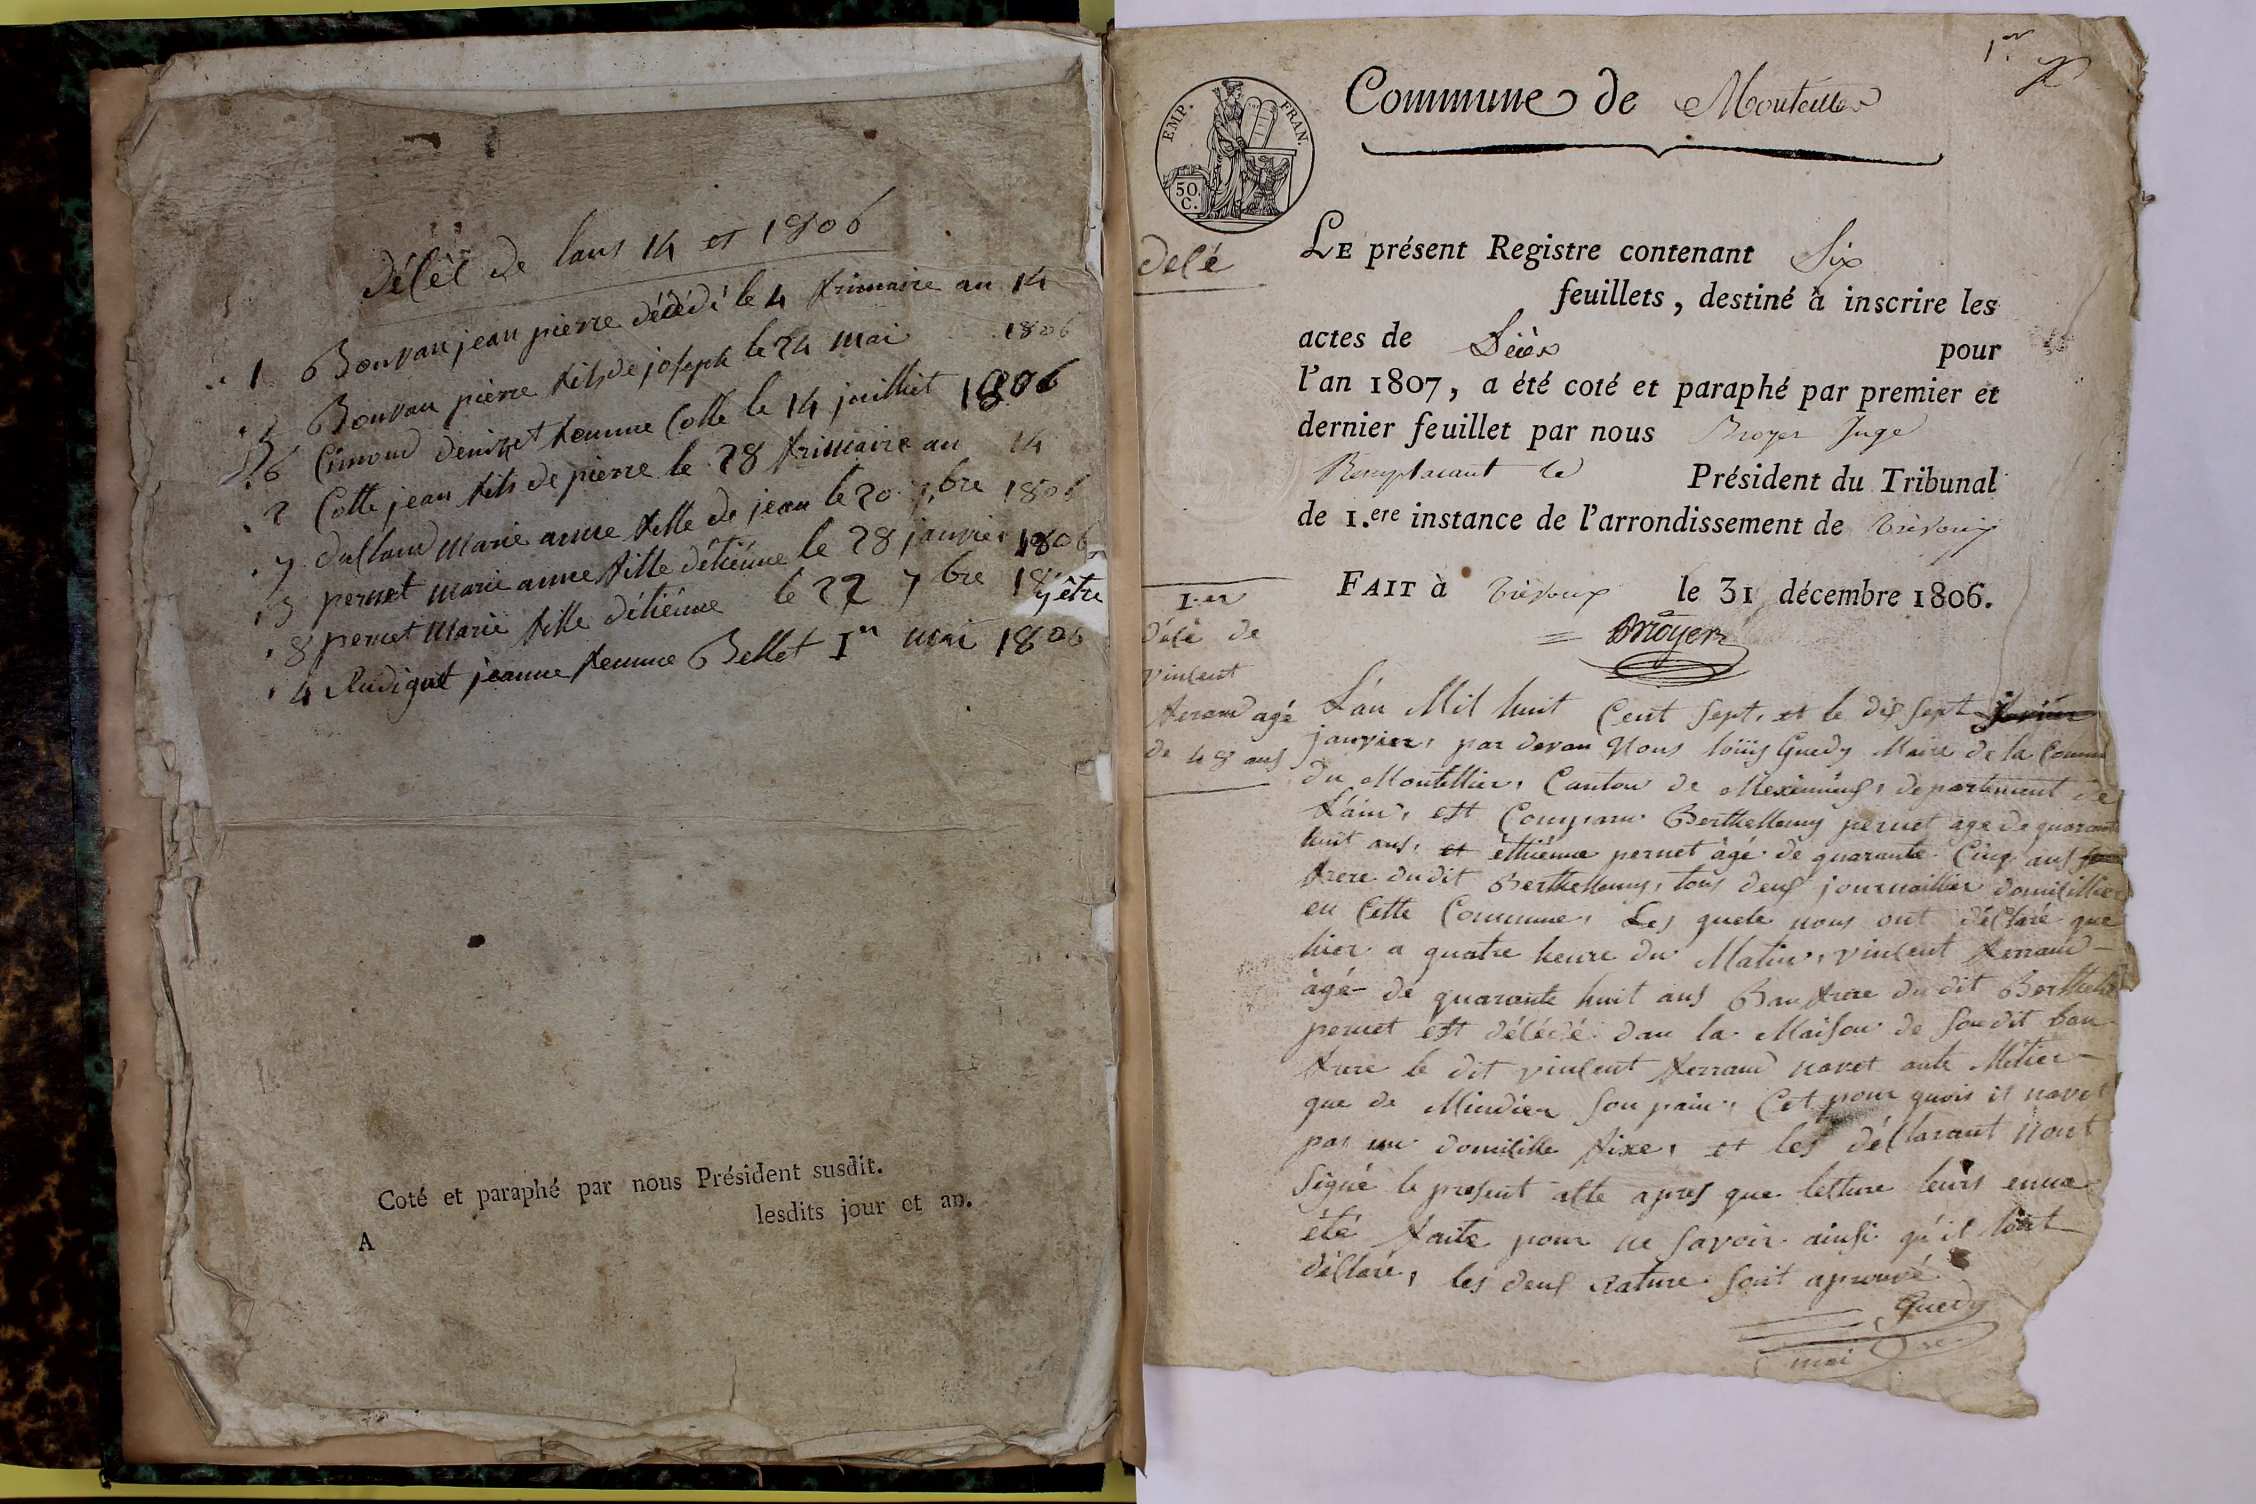 délèt de lans 14 et 1806
1 Bouvan jean pierre décédé le 4 frimaire an 14
5 Bouvan pierre fils de joseph le 24 mai 1806
6 Cimond denizet femme Colle le 14 juilliet 1806
2 Cotte jean fils de pierre le 28 frimaire an 14
7 dulland marie anne fille de jean le 20 7bre 1806
3 pernet marie anne fille détiénne le 28 janvier 1806
8 pernet marie fille détiénne le 22 7bre 18
y être
4 Rudigoit jeanne femme Bellet 1er mai 1806
Coté et paraphé par nous Président susdit.
lesdits jour et an.
A
1er
Commune de Montellier
EMP. FRAN.
50 C.
LE présent Registre contenant Six
feuillets, destiné à inscrire les
actes de Décès pour
l'an 1807, a été coté et paraphé par premier et
dernier feuillet par nous Broyer Juge
Remplacant le Président du Tribunal
de 1.ere instance de l'arrondissement de Trévoux
FAIT à Trévoux le 31 décembre 1806.
Broyer
Delé
1.er
Délé de
vinlent
ferrand agé
de 48 ans
L'an Mil huit Cent Sept, et le dix Sept
janvier, par devan Nous loüis Guedy Maire de la Comm
du Montellier, Canton de Meximieuf, departement de
L'ain, est Comparu Berthellemy pernet age de quarante
huit ans, et éthiénne pernet àgé de quarante Cinq ans
frere dudit Berthellemy, tous deuf journaillier domicillier
en Cette Commune, Les quele nous ont déClaré que
hier a quatre heure du Matin, vinlent ferrand
àgé de quarante huit ans Bau frere du dit Berthele
pernet est délédé dan la Maison de Soudit bau
frere le dit vinlent ferrand navet aute Métier
que de Mindier Son pain, Cet pour quois il navet
pas un domicille fixe, et les déClarant Nont
Signé le present alte apres que letture leurs enua
été faite pour ne Savoir ainsi qu'il lont
déClaré, les deuf rature Sont aprouvé
Guedy
maire